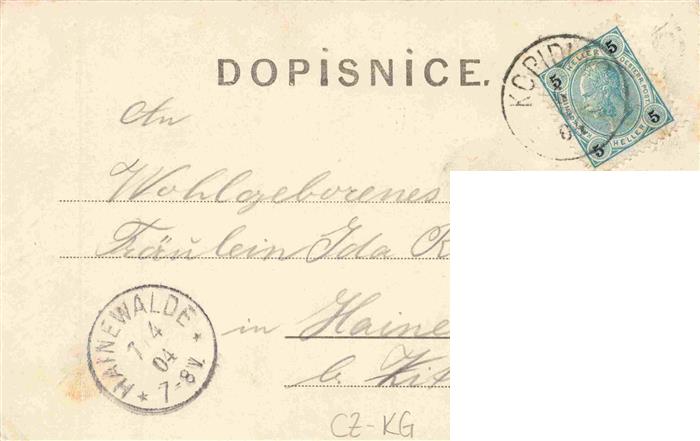 DOPISNICE.
5 HELLER 5
5 HELLER 5
An
Wohlgeborenes
Fräulein Ida
in Haine
b. Zit
HAINEWALDE
7 4
04
7-8V.
CZ-KG